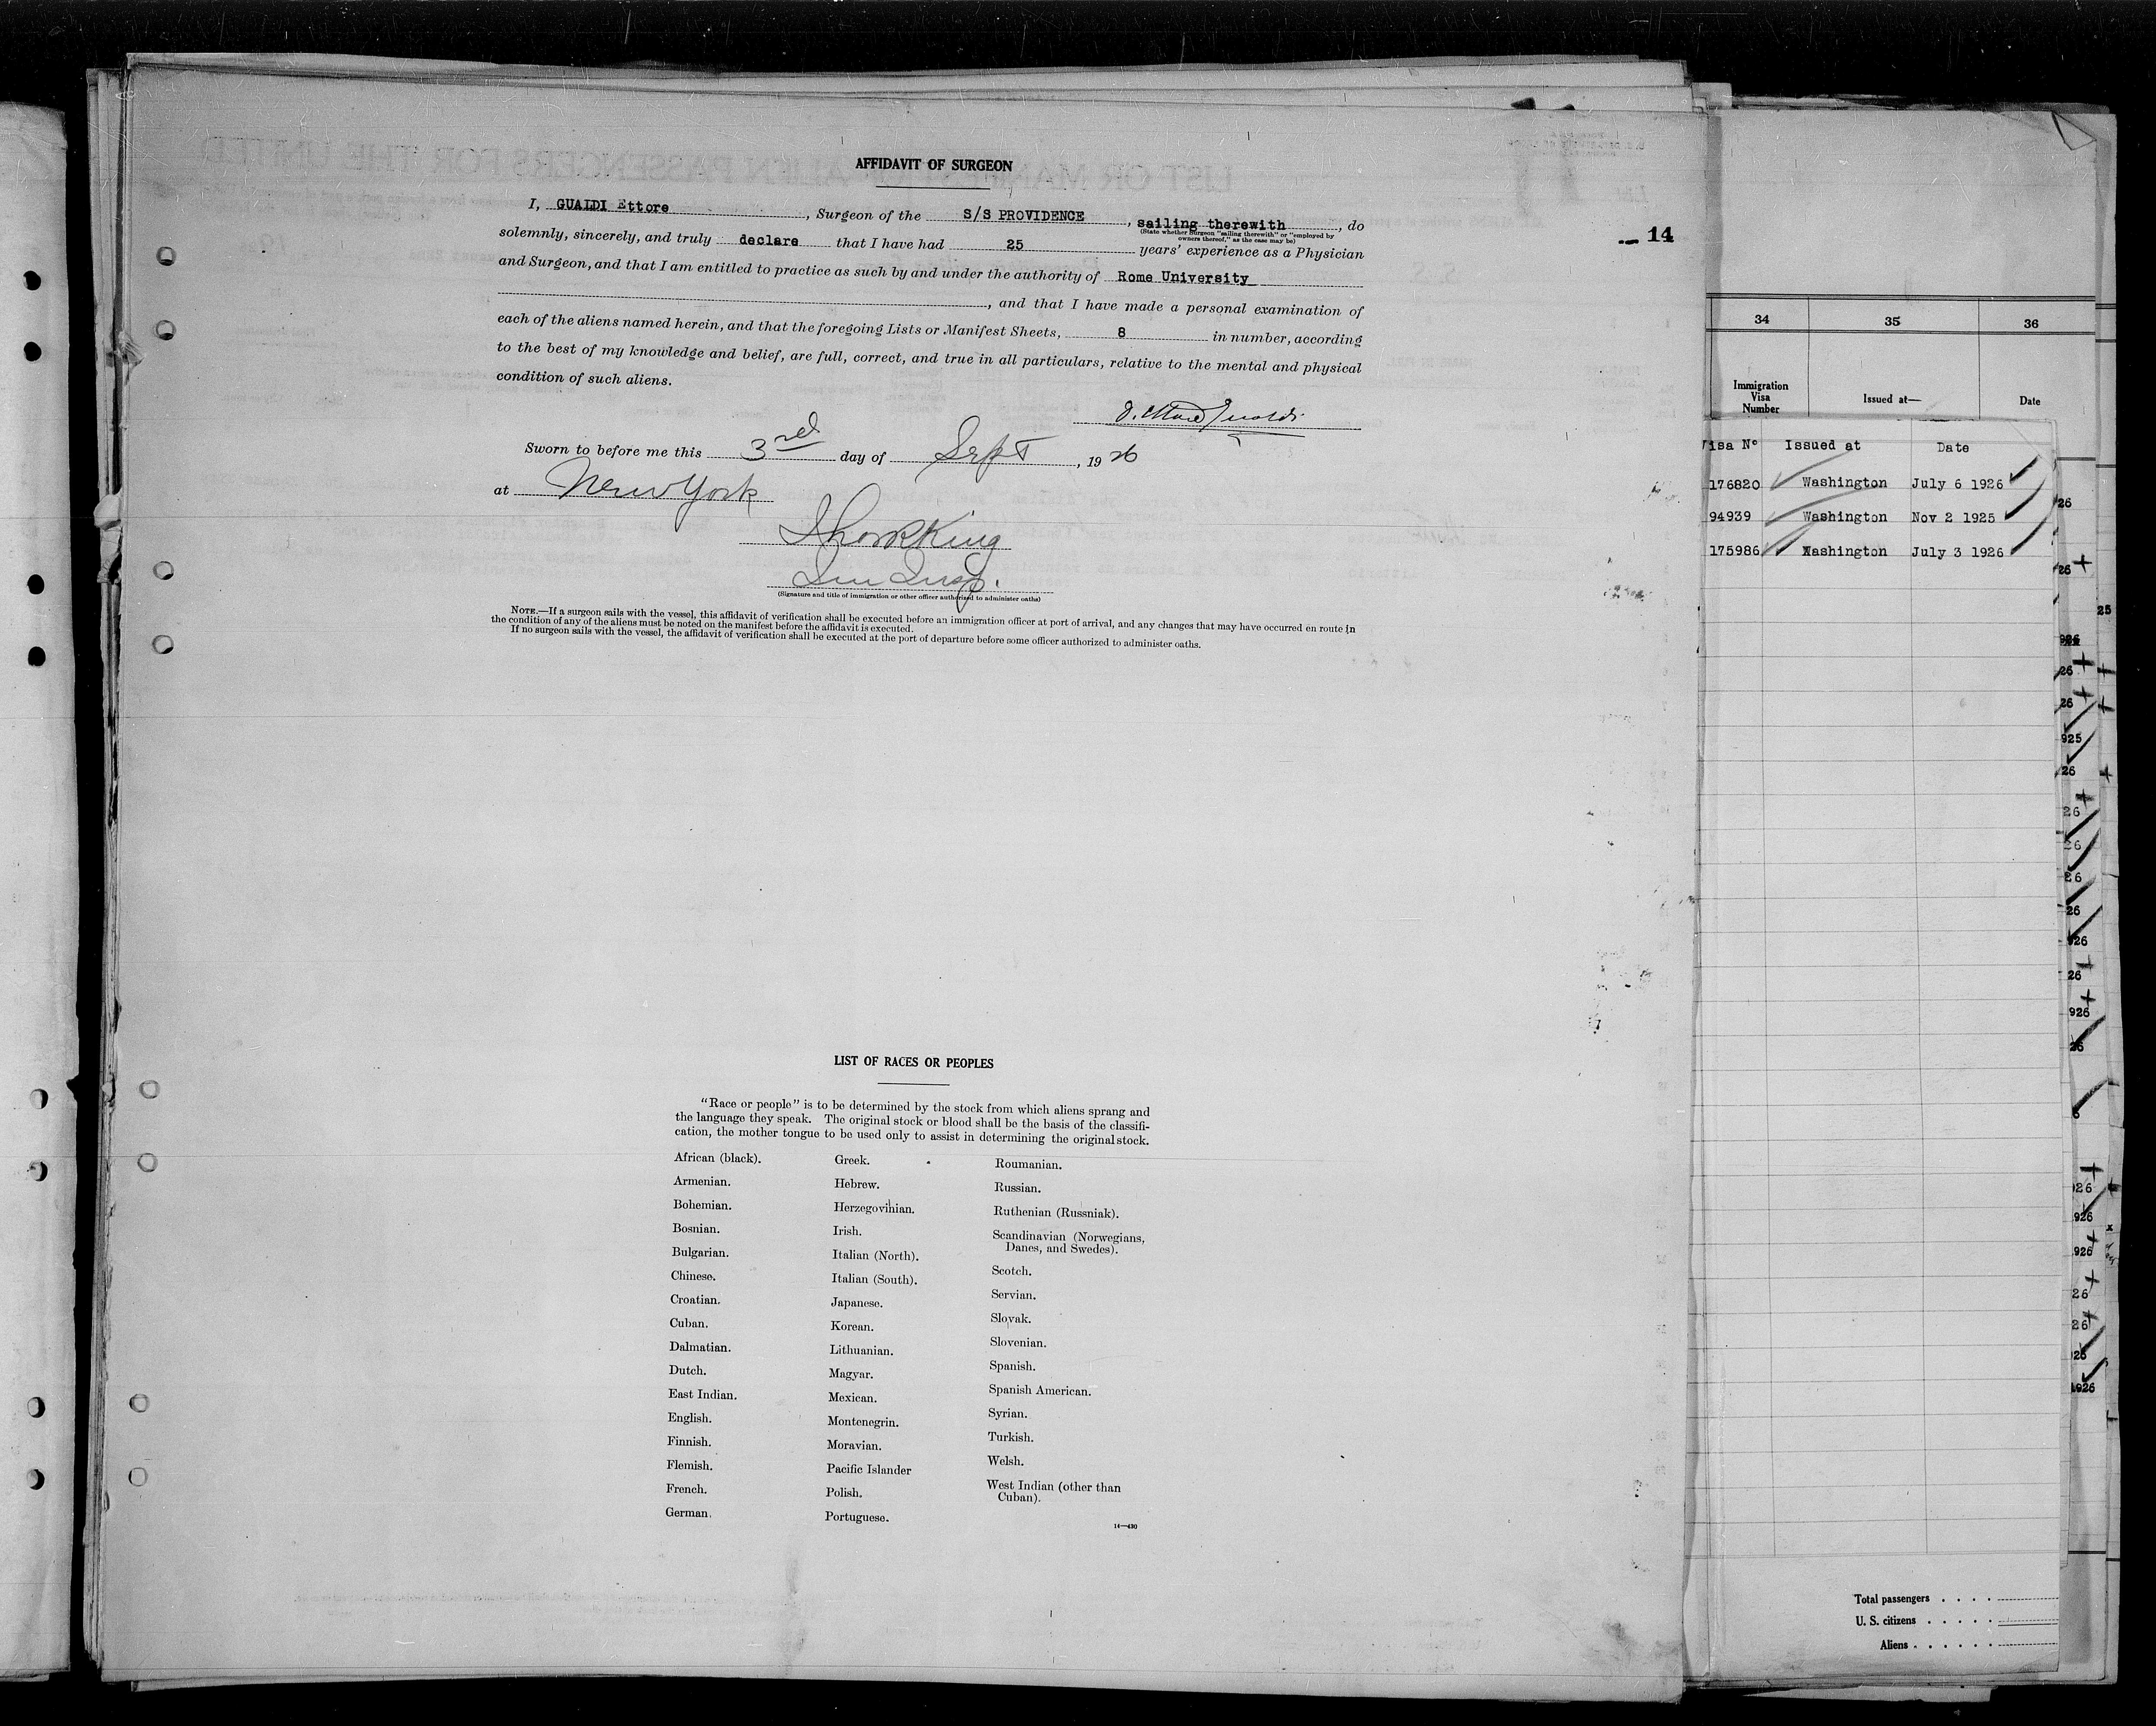 AFFIDAVIT OF SURGEON
I, GUALDI Ettore, Surgeon of the S/S PROVIDENCE, sailing therewith, do
(State whether Surgeon "sailing therewith" or "employed by
owners thereof," as the case may be)
solemnly, sincerely, and truly declare that I have had 25 years' experience as a Physician
and Surgeon, and that I am entitled to practice as such by and under the authority of Rome University
, and that I have made a personal examination of
each of the aliens named herein, and that the foregoing Lists or Manifest Sheets, 8 in number, according
to the best of my knowledge and belief, are full, correct, and true in all particulars, relative to the mental and physical
condition of such aliens.
Sworn to before me this 3rd day of Sept, 1926
at New York
(Signature and title of immigration or other officer authorized to administer oaths)
NOTE.—If a surgeon sails with the vessel, this affidavit of verification shall be executed before an immigration officer at port of arrival, and any changes that may have occurred en route in
the condition of any of the aliens must be noted on the manifest before the affidavit is executed.
If no surgeon sails with the vessel, the affidavit of verification shall be executed at the port of departure before some officer authorized to administer oaths.
LIST OF RACES OR PEOPLES
"Race or people" is to be determined by the stock from which aliens sprang and
the language they speak. The original stock or blood shall be the basis of the classifi-
cation, the mother tongue to be used only to assist in determining the original stock.
African (black).
Armenian.
Bohemian.
Bosnian.
Bulgarian.
Chinese.
Croatian.
Cuban.
Dalmatian.
Dutch.
East Indian.
English.
Finnish.
Flemish.
French.
German.
Greek.
Hebrew.
Herzegovinian.
Irish.
Italian (North).
Italian (South).
Japanese.
Korean.
Lithuanian.
Magyar.
Mexican.
Montenegrin.
Moravian.
Pacific Islander
Polish.
Portuguese.
Roumanian.
Russian.
Ruthenian (Russniak).
Scandinavian (Norwegians,
Danes, and Swedes).
Scotch.
Servian.
Slovak.
Slovenian.
Spanish.
Spanish American.
Syrian.
Turkish.
Welsh.
West Indian (other than
Cuban).
14—430
14
34 35 36
Immigration
Visa
Number
Issued at—
Date
Visa N° Issued at Date
176820 Washington July 6 1926
94939 Washington Nov 2 1925
175986 Washington July 3 1926
Total passengers
U. S. citizens
Aliens